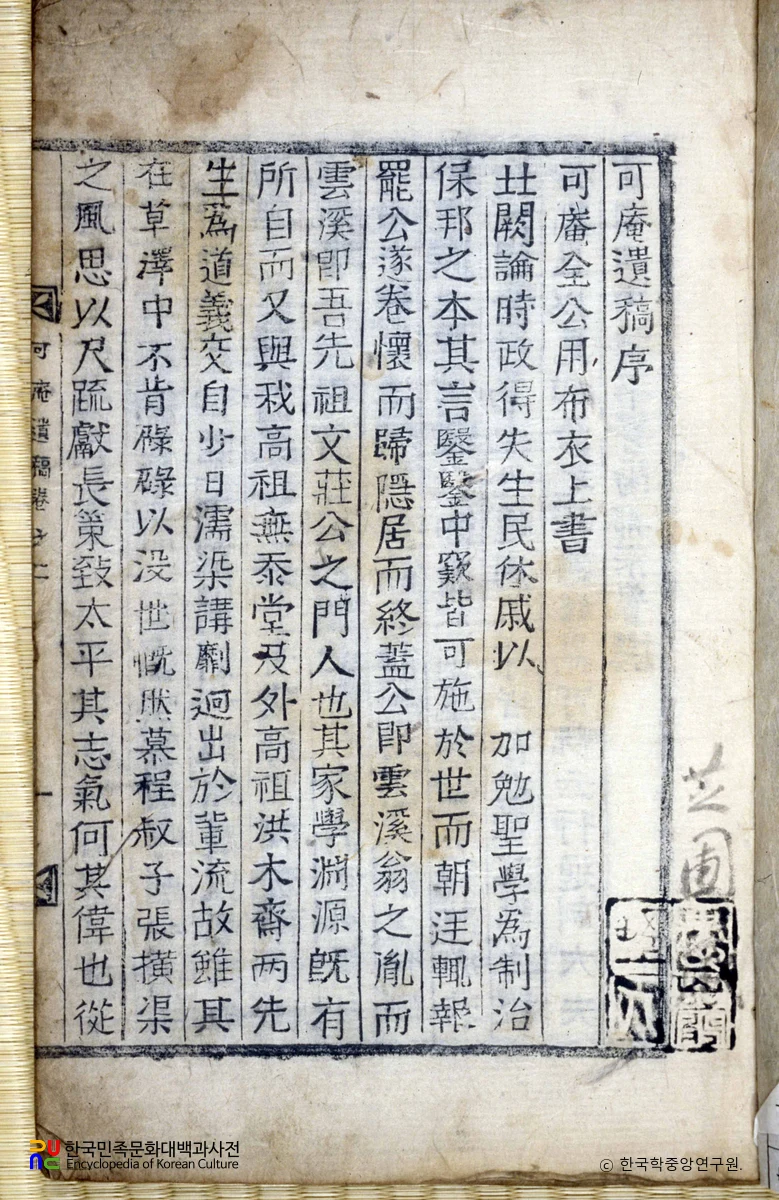 可庵遺稿序
可庵全公用布衣上書
北闕論時政得失生民休戚以 加勉聖學為制治
保邦之本其言鑿鑿中窾皆可施於世而朝廷輒報
罷公遂卷懷而歸隱居而終蓋公卽雲溪翁之胤而
雲溪卽吾先祖文莊公之門人也其家學淵源旣有
所自而又與我高祖無忝堂及外高祖洪木齋兩先
生為道義交自少日濡染講劘逈出於輩流故雖其
在草澤中不肯碌碌以没世慨然慕程叔子張橫渠
之風思以尺疏獻長策致太平其志氣何其偉也從
可庵遺稿卷之一
一
芝圃
한국민족문화대백과사전
Encyclopedia of Korean Culture
© 한국학중앙연구원.